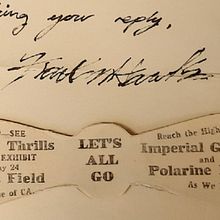 ing you reply,
SEE
Thrills
EXHIBIT
ay 24
s Field
e of CA.
LET'S
ALL
GO
Reach the High
Imperial G
and
Polarine
As We